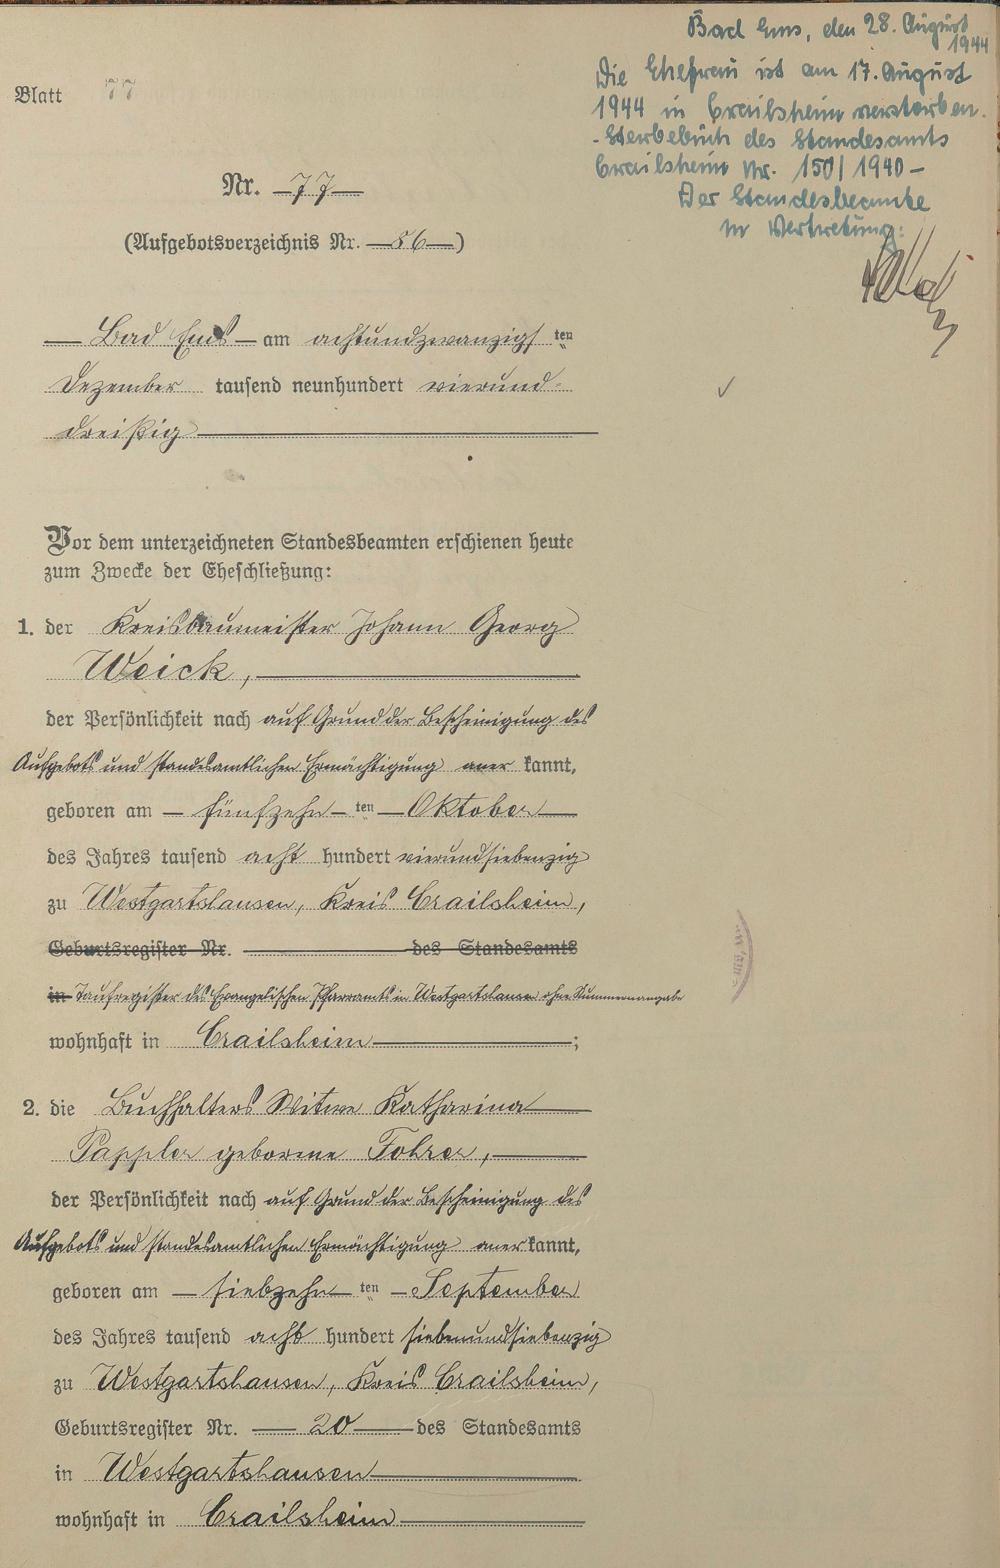 Bad Ems, den 28. August
1944
Die Ehefrau ist am 17. August
1944 in Crailsheim verstorben.
- Sterbebuch des Standesamts
Crailsheim Nr. 150/1940 -
Der Standesbeamte
In Vertretung:
Blatt 77
Nr. 77
(Aufgebotsverzeichnis Nr. 86)
Bad Ems am achtundzwanzigsten
Dezember tausend neunhundert vierund-
dreißig
Vor dem unterzeichneten Standesbeamten erschienen heute
zum Zwecke der Eheschließung:
1. der Kreisbaumeister Johann Georg
Weick,
der Persönlichkeit nach auf Grund der Bescheinigung des
Aufgebots und standesamtlichen Ermächtigung anerkannt,
geboren am fünfzehnten Oktober
des Jahres tausend acht hundert vierundsiebenzig
zu Westgartshausen, Kreis Crailsheim,
Geburtsregister Nr. des Standesamts
in Taufregister des Evangelischen Pfarramts in Westgartshausen ohne Nummernangabe
wohnhaft in Crailsheim ;
2. die Buchhalters Witwe Katharina
Pappler geborene Fohrer,
der Persönlichkeit nach auf Grund der Bescheinigung des
Aufgebots und standesamtlichen Ermächtigung anerkannt,
geboren am siebzehnten September
des Jahres tausend acht hundert siebenundsiebenzig
zu Westgartshausen, Kreis Crailsheim,
Geburtsregister Nr. 20 des Standesamts
in Westgartshausen
wohnhaft in Crailsheim